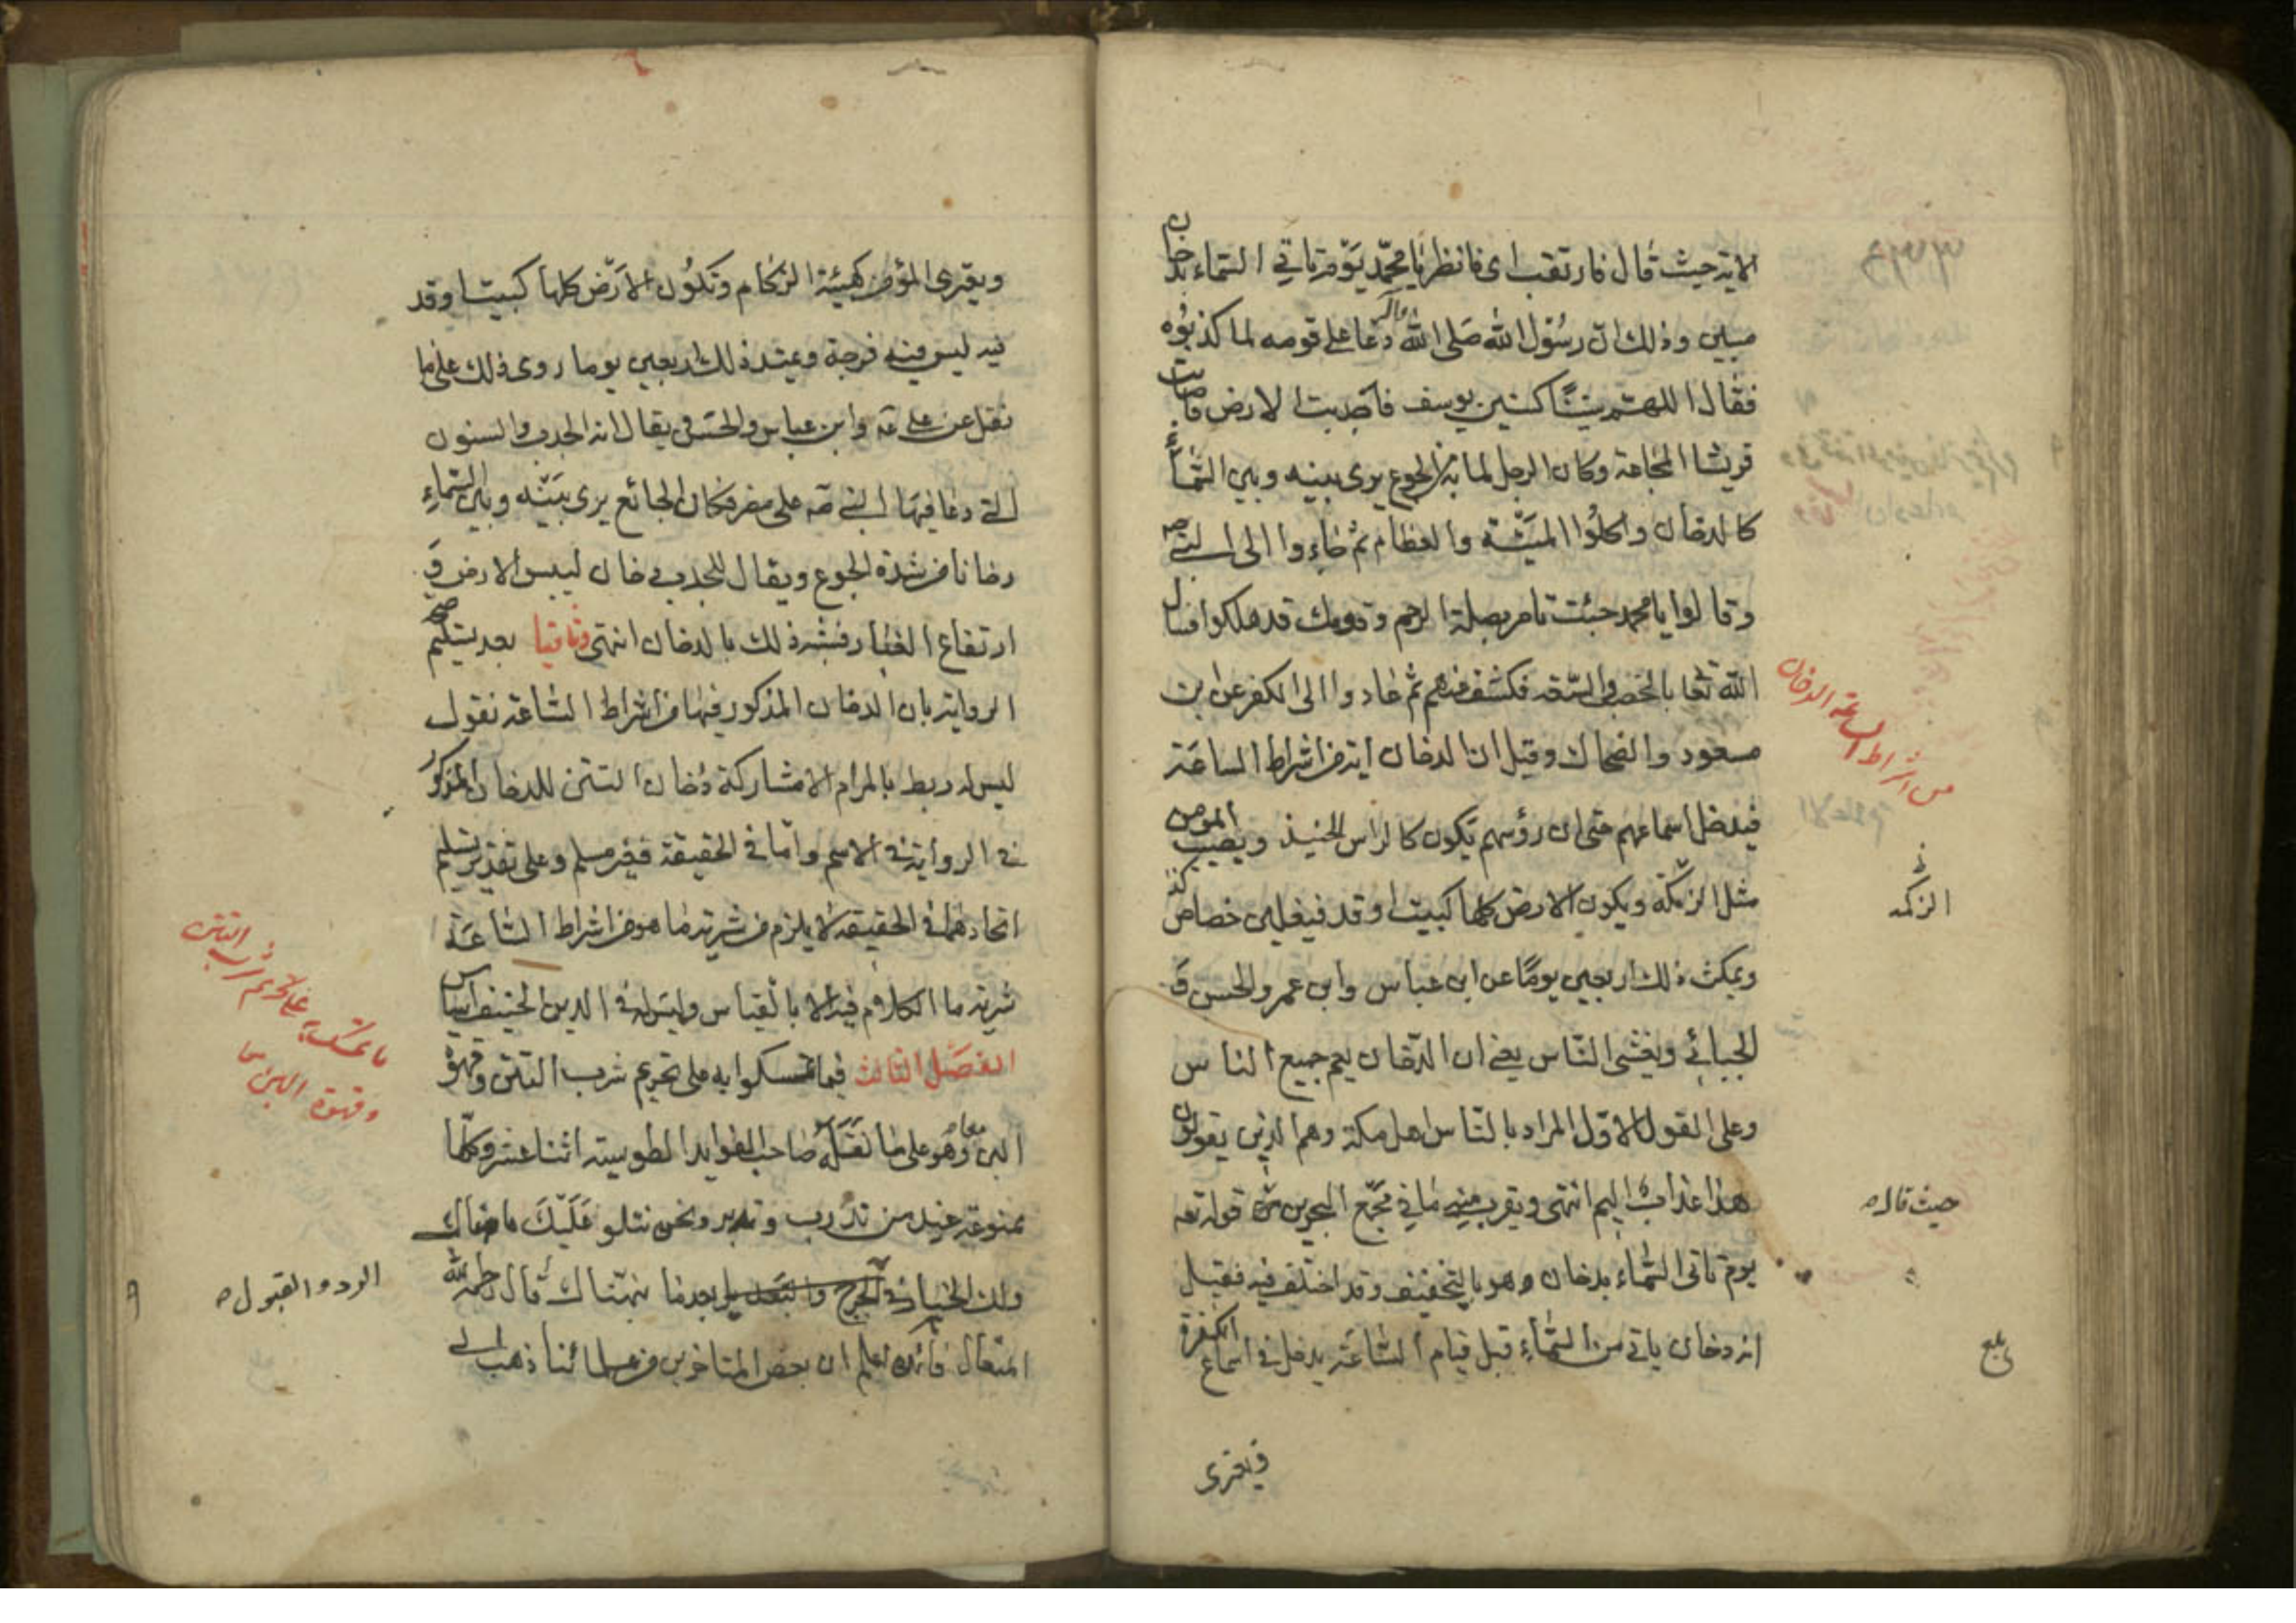 الاية حيث قال فارتقب اى فانظر يا محمد يوم تاتي السماء بدخان
مبين وذلك ان رسول الله صلى الله واله دعا على قومه لما كذبوه
فقال اللهم سنينا كسنين يوسف فاجدبت الارض فاصابت
قريشا المجاعة وكان الرجل لما به من الجوع يرى بينه وبين السماء
كالدخان واكلوا الميتة والعظام ثم جاءوا الى النبي صه
وقالوا يا محمد جئت تامر بصلة الرحم وقومك قد هلكوا فسال
الله تعا بالخصب والسعة فكشف عنهم ثم عادوا الى الكفر عن ابن
مسعود والضحاك وقيل ان الدخان اية من اشراط الساعة
من اشراط الساعة الدخان
فيدخل اسماعهم حتى ان رؤسهم تكون كالراس الحنيذ ويصيب المومن
مثل الزكمة ويكون الارض كلها كبيت اوقد فيه ليس خصاص
الزكمه
ويمكث ذلك اربعين يوما عن ابن عباس وابن عمر والحسن و
الجبائي ويغشى الناس يعنى ان الدخان يعم جميع الناس
وعلى القول الاول المراد بالناس اهل مكة وهم الذين يقولون
هذا عذاب اليم انتهى ويقرب منه ما في مجمع البحرين قوله تعه
حيث قال ه
يوم تاتى السماء بدخان وهو بالتخفيف وقد اختلف فيه فقيل
انه دخان ياتى من السماء قبل قيام الساعة يدخل في اسماع الكفرة
بلغ
فيعترى
ويعترى المؤمن كهيئة الزكام وتكون الارض كلها كبيت اوقد
فيه ليس فيه فرجة ويمتد ذلك اربعين يوما روى ذلك على ما
نقل عن على عه وابن عباس والحسن ويقال انه الجدب والسنون
التى دعا فيها النبي صه على مضر فكان الجائع يرى بينه وبين السماء
دخانا من شدة الجوع ويقال للجدب دخان ليبس الارض و
ارتفاع الغبار فشبه ذلك بالدخان انتهى وثانيا بعد تسليم صحه
الرواية بان الدخان المذكور فيها من اشراط الساعة نقول
ليس له ربط بالمرام الا مشاركة دخان التتن للدخان المذكور
في الرواية في الاسم واما في الحقيقة فغير مسلم وعلى تقدير تسليم
اتحادهما في الحقيقة لا يلزم من شرية ما هو من اشراط الساعة
شرية ما الكلام فيه الا بالقياس وليس له في الدين الحنيف اساس
الفصل الثالث فيما تمسكوا به على تحريم شرب التتن وقهوة
ما تمسك به على تحريم شرب التتن
وقهوة البن
البن معا وهو على ما نقله صاحب الفوايد الطوسية اثنا عشر وكلها
ممنوعة عند من تدرب وتدبر ونحن نتلو عليك ما هناك
ولك الخيار في الرد والقبول بعد ما نبهناك قال رحمه الله
الرد والقبول ه
المتعال اعلم ان بعض المتاخرين من علمائنا ذهب الى